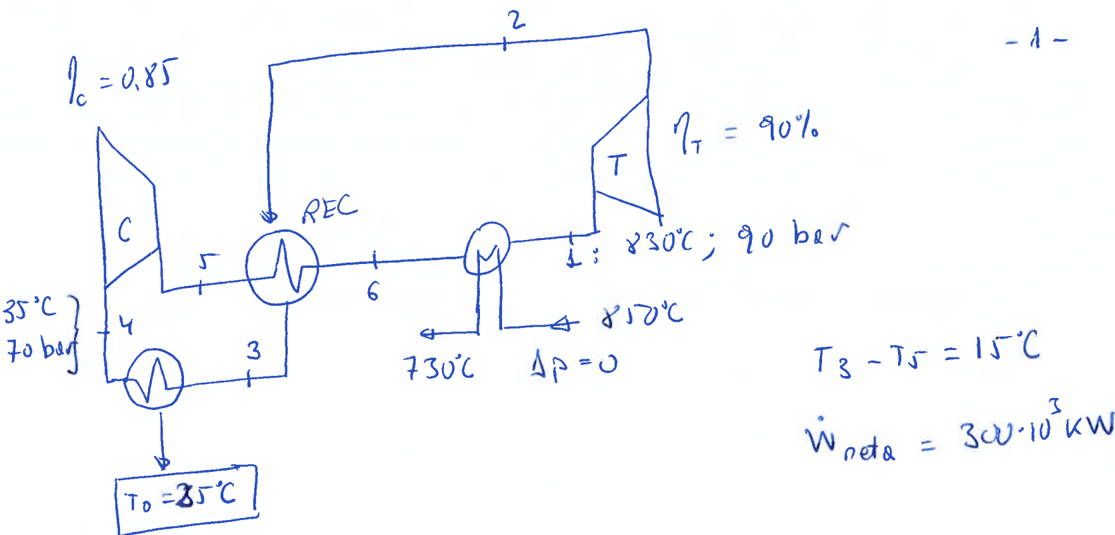 - 1 -
2
η_c = 0,85
η_T = 90%
T
C
REC
5
6
1 : 830°C ; 90 bar
35°C
70 bar
4
3
850°C
730°C
Δp = 0
T_3 - T_5 = 15°C
Ẇ_neta = 300·10^3 kW